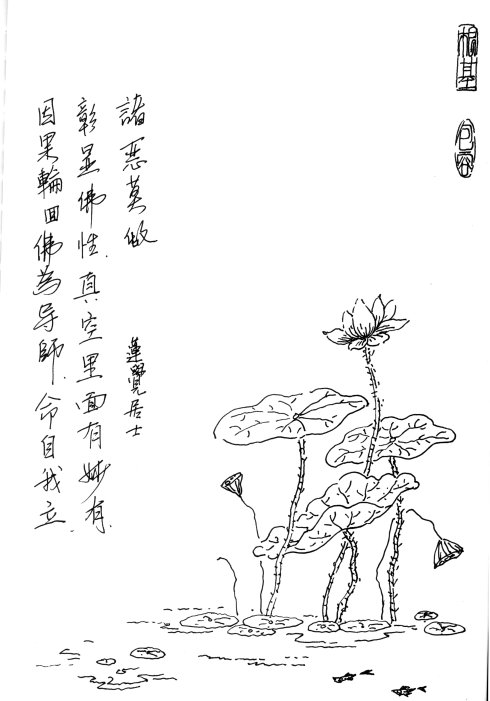 包容
諸恶莫做
蓮覺居士
彰显佛性.真空里面有妙有.
因果輪回佛為导師.命自我立.